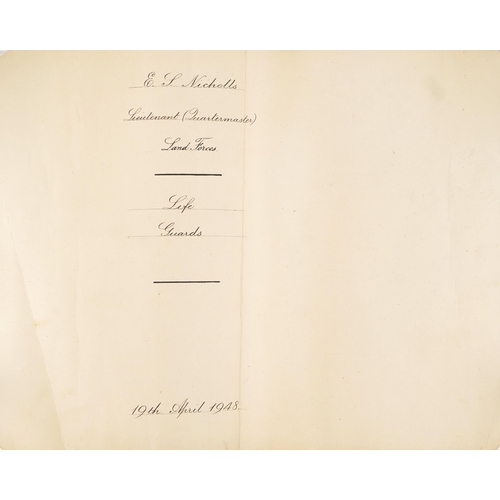 E. S. Nicholls
Lieutenant (Quartermaster)
Land Forces
Life
Guards
19th April 1948